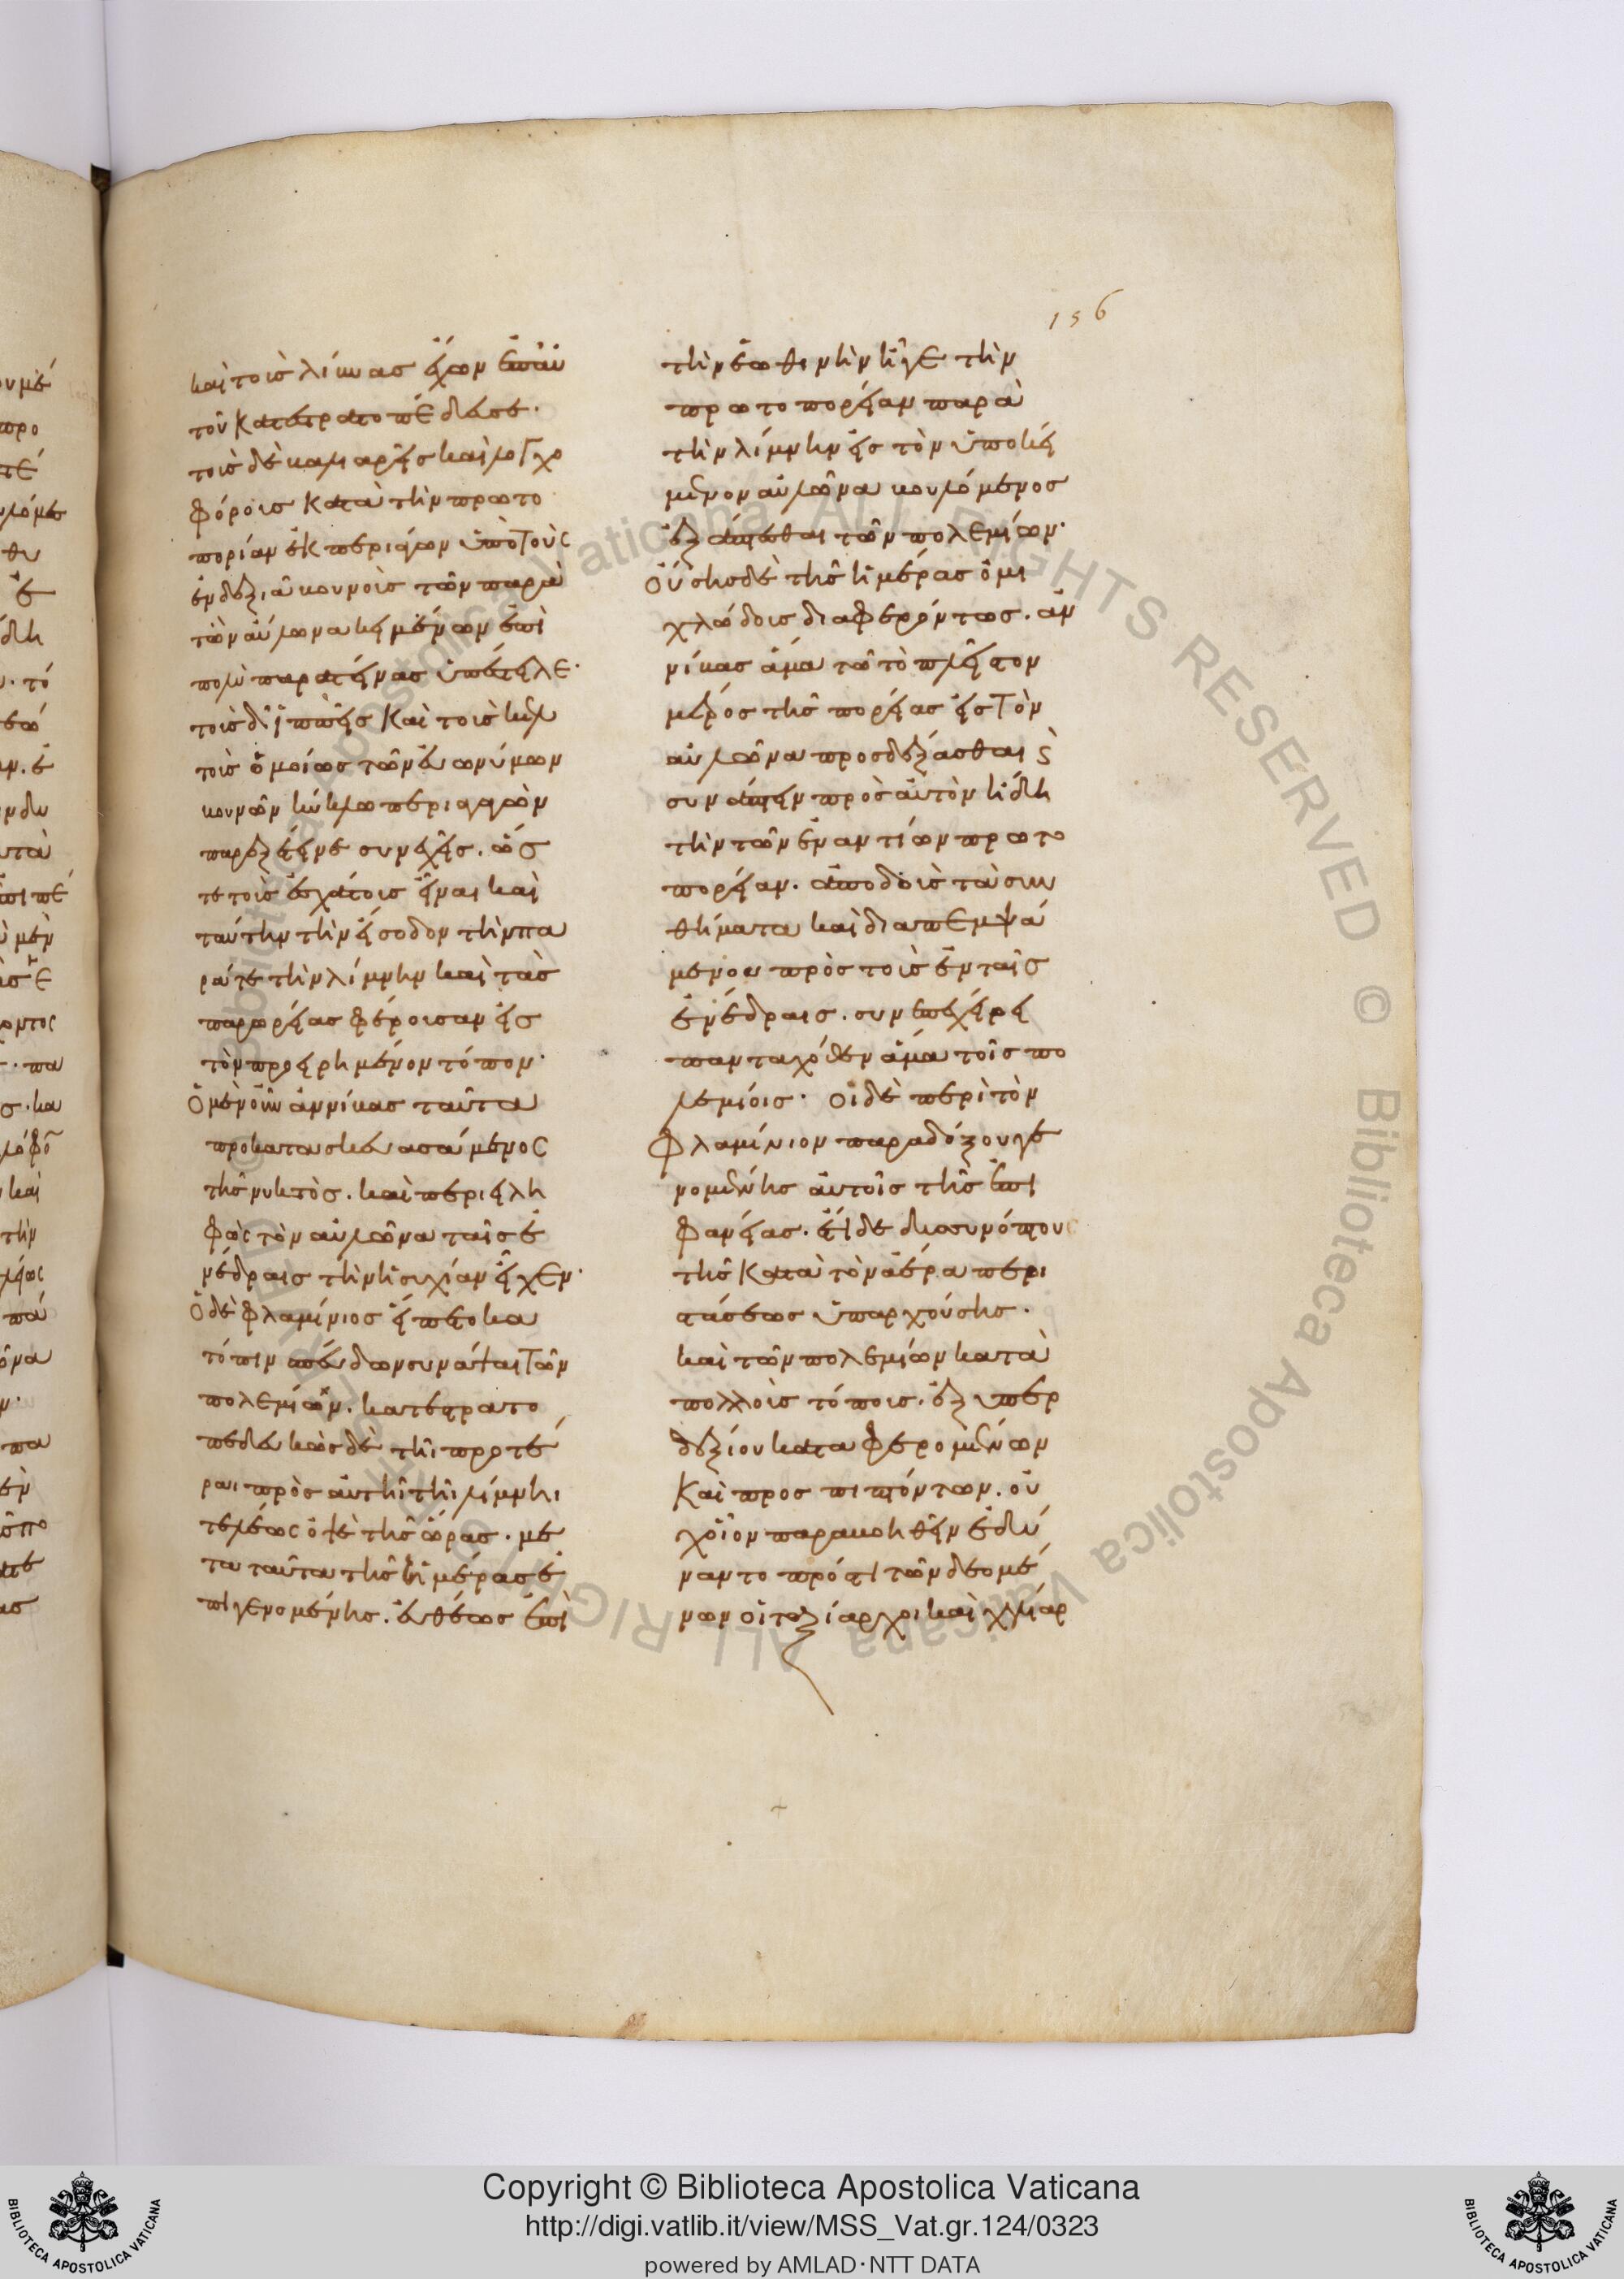 καὶ τοὺς λίβυας ἔχων ἐπ' αὐ
τοῦ κατεστρατοπέδευσε·
τοὺς δὲ βαλιαρεῖς καὶ λογχο
φόρους κατὰ τὴν πρωτο
πορίαν ἐκπεριάγων ὑπὸ τοὺς
ἐν δεξιᾶ βουνοὺς τῶν παρὰ
τὸν αὐλῶνα κειμένων ἐπὶ
πολὺ παρατείνας ὑπέστειλε·
τοὺς δ' ἱππεῖς καὶ τοὺς κελ
τοὺς ὁμοίως τῶν εὐωνύμων
βουνῶν κύκλω περιαγαγὼν
παρεξέτεινε συνεχεῖς. ὥσ
τε τοὺς ἐσχάτους εἶναι καὶ
ταύτην τὴν εἴσοδον τὴν πα
ρά τε τὴν λίμνην καὶ τὰς
παρωρείας φέρουσαν εἰς
τὸν προειρημένον τόπον·
Ὁ μὲν οὖν ἀννίβας ταῦτα
προκατασκευασάμενος
τῆς νυκτὸς. καὶ περιειλη
φὼς τὸν αὐλῶνα ταῖς ἐ
νέδραις τὴν ἡσυχίαν εἶχεν·
Ὁ δὲ φλαμίνιος εἵπετο κα
τόπιν σπεύδων συνάψαι τῶν
πολεμίων. κατεστρατο
πεδευκὼς δὲ τῆι προτε
ραι πρὸς αὐτῆι τῆι λίμνηι
τελέως ὀψὲ τῆς ὥρας. με
τα ταῦτα τῆς ἡμέρας ἐ
πιγενομένης. εὐθέως ἐπὶ
156
τὴν ἑωθινὴν ἦγε τὴν
πρωτοπορείαν παρὰ
τὴν λίμνην εἰς τὸν ὑποκεί
μενον αὐλῶνα βουλόμενος
ἐξάπτεσθαι τῶν πολεμίων·
Οὔσης δὲ τῆς ἡμέρας ὁμι
χλώδους διαφερόντως. ἀν
νίβας ἅμα τῶ τὸ πλεῖστον
μέρος τῆς πορείας εἰς τὸν
αὐλῶνα προσδέξασθαι ϗ
συνάπτειν πρὸς αὐτὸν ἤδη
τὴν τῶν ἐναντίων πρωτο
πορείαν. ἀποδοὺς τὰ συν
θήματα καὶ διαπεμψά
μενος πρὸς τοὺς ἐν ταῖς
ἐνέδραις. συνεπεχείρει
πανταχόθεν ἅμα τοῖς πο
λεμίοις. οἱ δὲ περὶ τὸν
Φλαμίνιον παραδόξου γε
νομένης αὐτοῖς τῆς ἐπι
φανείας. ἔτι δὲ δυσσυνόπτου
τῆς κατὰ τὸν ἀέρα περι
στάσεως ὑπαρχούσης.
καὶ τῶν πολεμίων κατὰ
πολλοὺς τόπους. ἐξ ὑπερ
δεξίου καταφερομένων
καὶ προσπιπτόντων. οὐ
χ οἷον παραβοηθεῖν ἐδύ
ναντο πρός τι τῶν δεομέ
νων οἱ ταξίαρχοι καὶ χιλίαρ
Copyright © Biblioteca Apostolica Vaticana
http://digi.vatlib.it/view/MSS_Vat.gr.124/0323
powered by AMLAD·NTT DATA